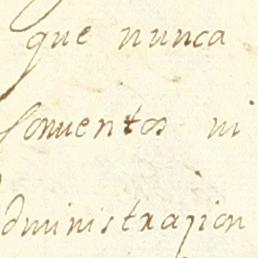 que nunca
Conuentos ni
dministrazion